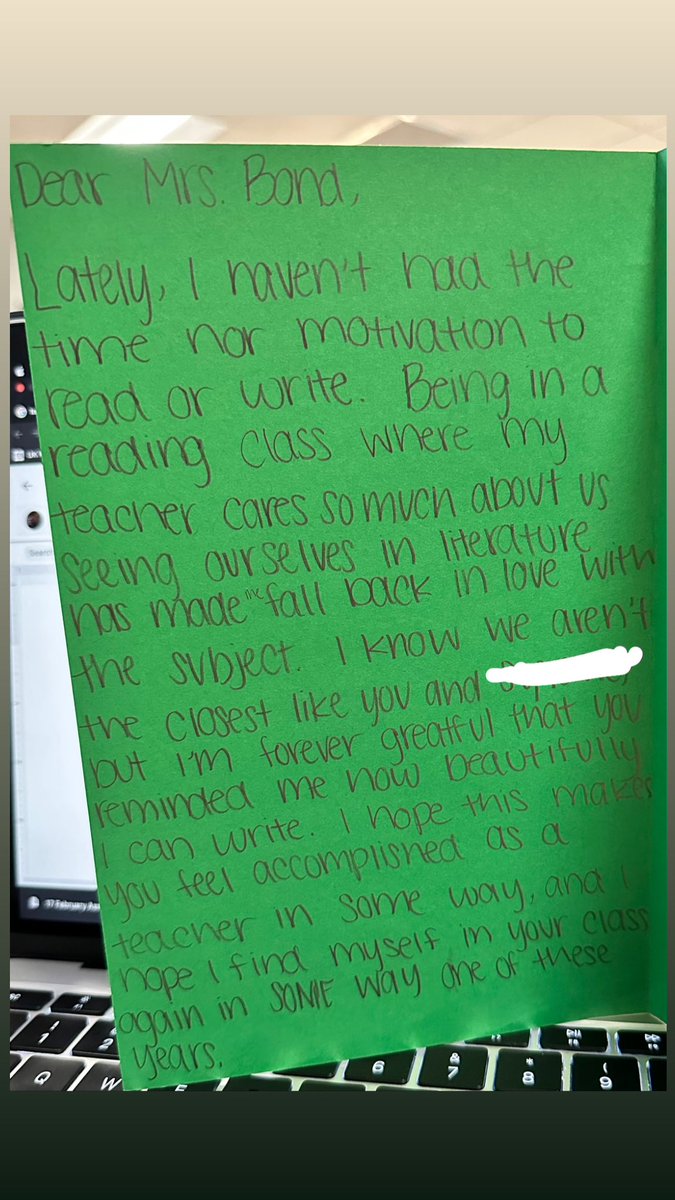 Dear Mrs. Bond,
Lately, I haven't had the
time nor motivation to
read or write. Being in a
reading class where my
teacher cares so much about us
seeing ourselves in literature
has made me fall back in love with
the subject. I know we aren't
the closest like you and
but I'm forever greatful that you
reminded me how beautifully
I can write. I hope this makes
you feel accomplished as a
teacher in some way, and I
hope I find myself in your class
again in SOME way one of these
years.
Q
W
E
1
2
6
&
7
*
8
(
9